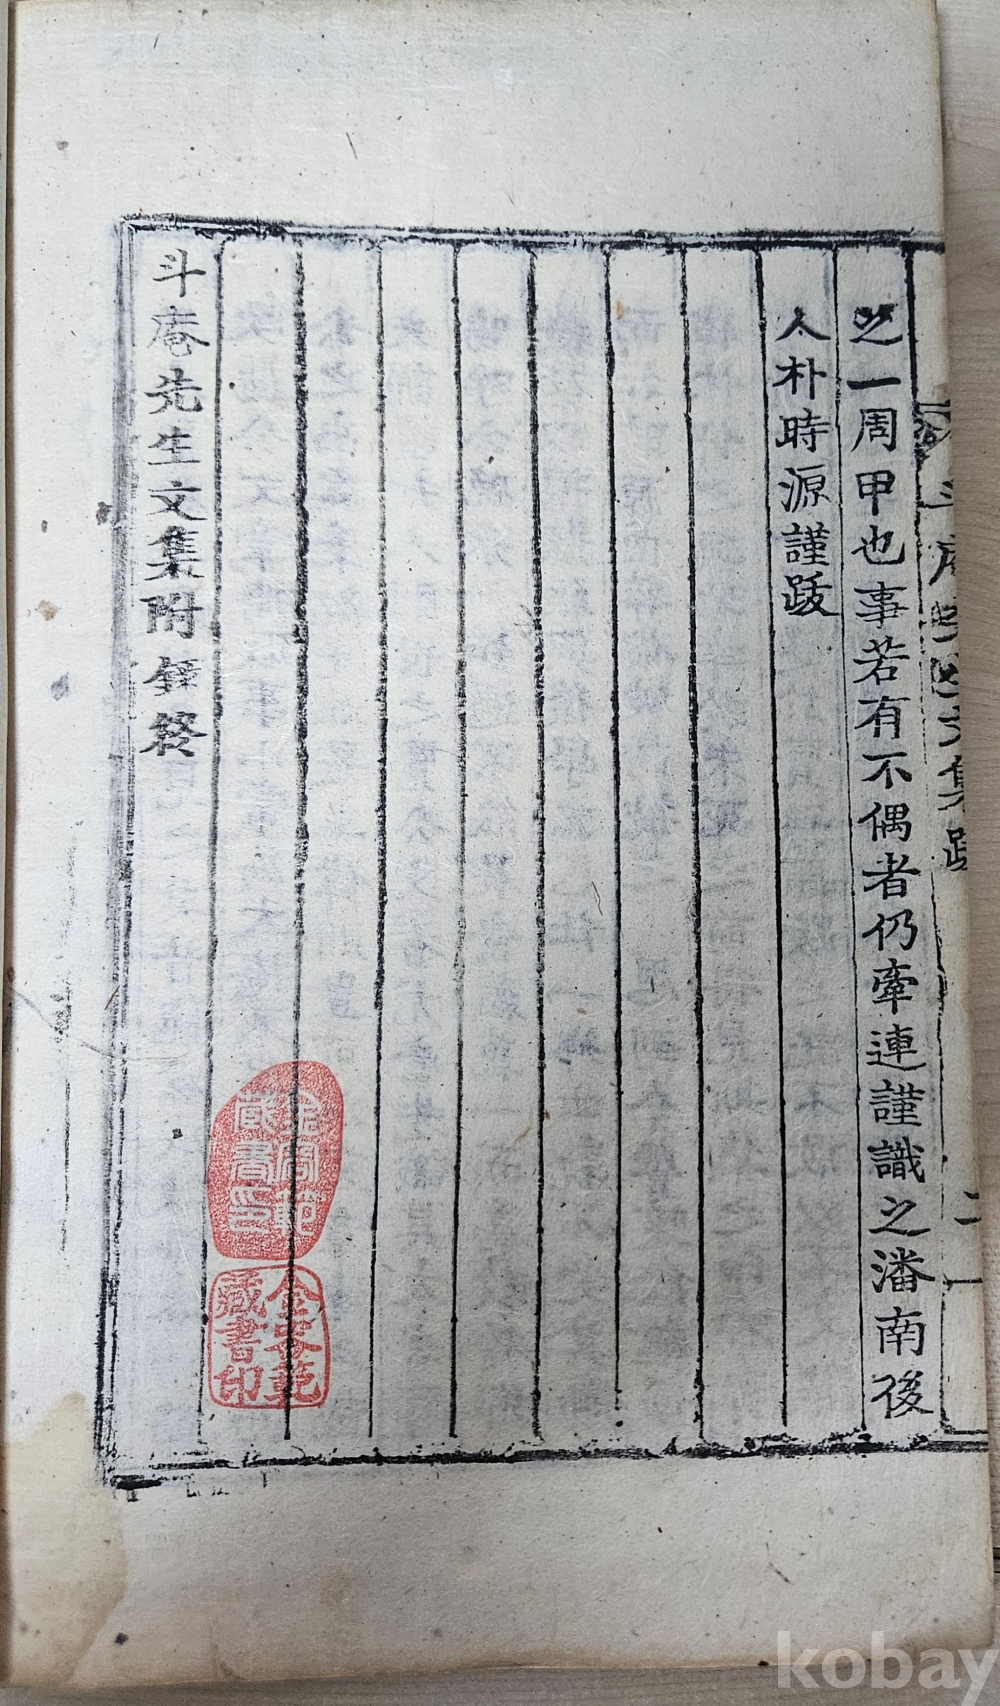 斗庵先生文集跋
二
之一周甲也事若有不偶者仍牽連謹識之潘南後
人朴時源謹跋
斗庵先生文集附錄終
藏書印
金容範
藏書印
kobay